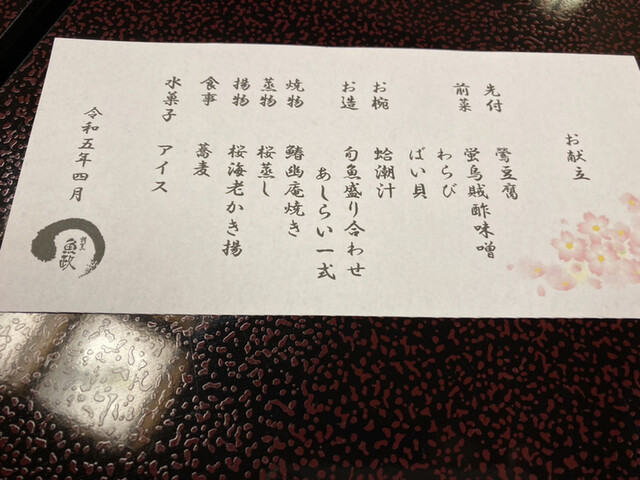 お献立
先付 鶯豆腐
前菜 蛍烏賊酢味噌
わらび
ばい貝
お椀 蛤潮汁
お造 旬魚盛り合わせ
あしらい一式
焼物 鰆幽庵焼き
蒸物 桜蒸し
揚物 桜海老かき揚
食事 蕎麦
水菓子 アイス
令和五年四月